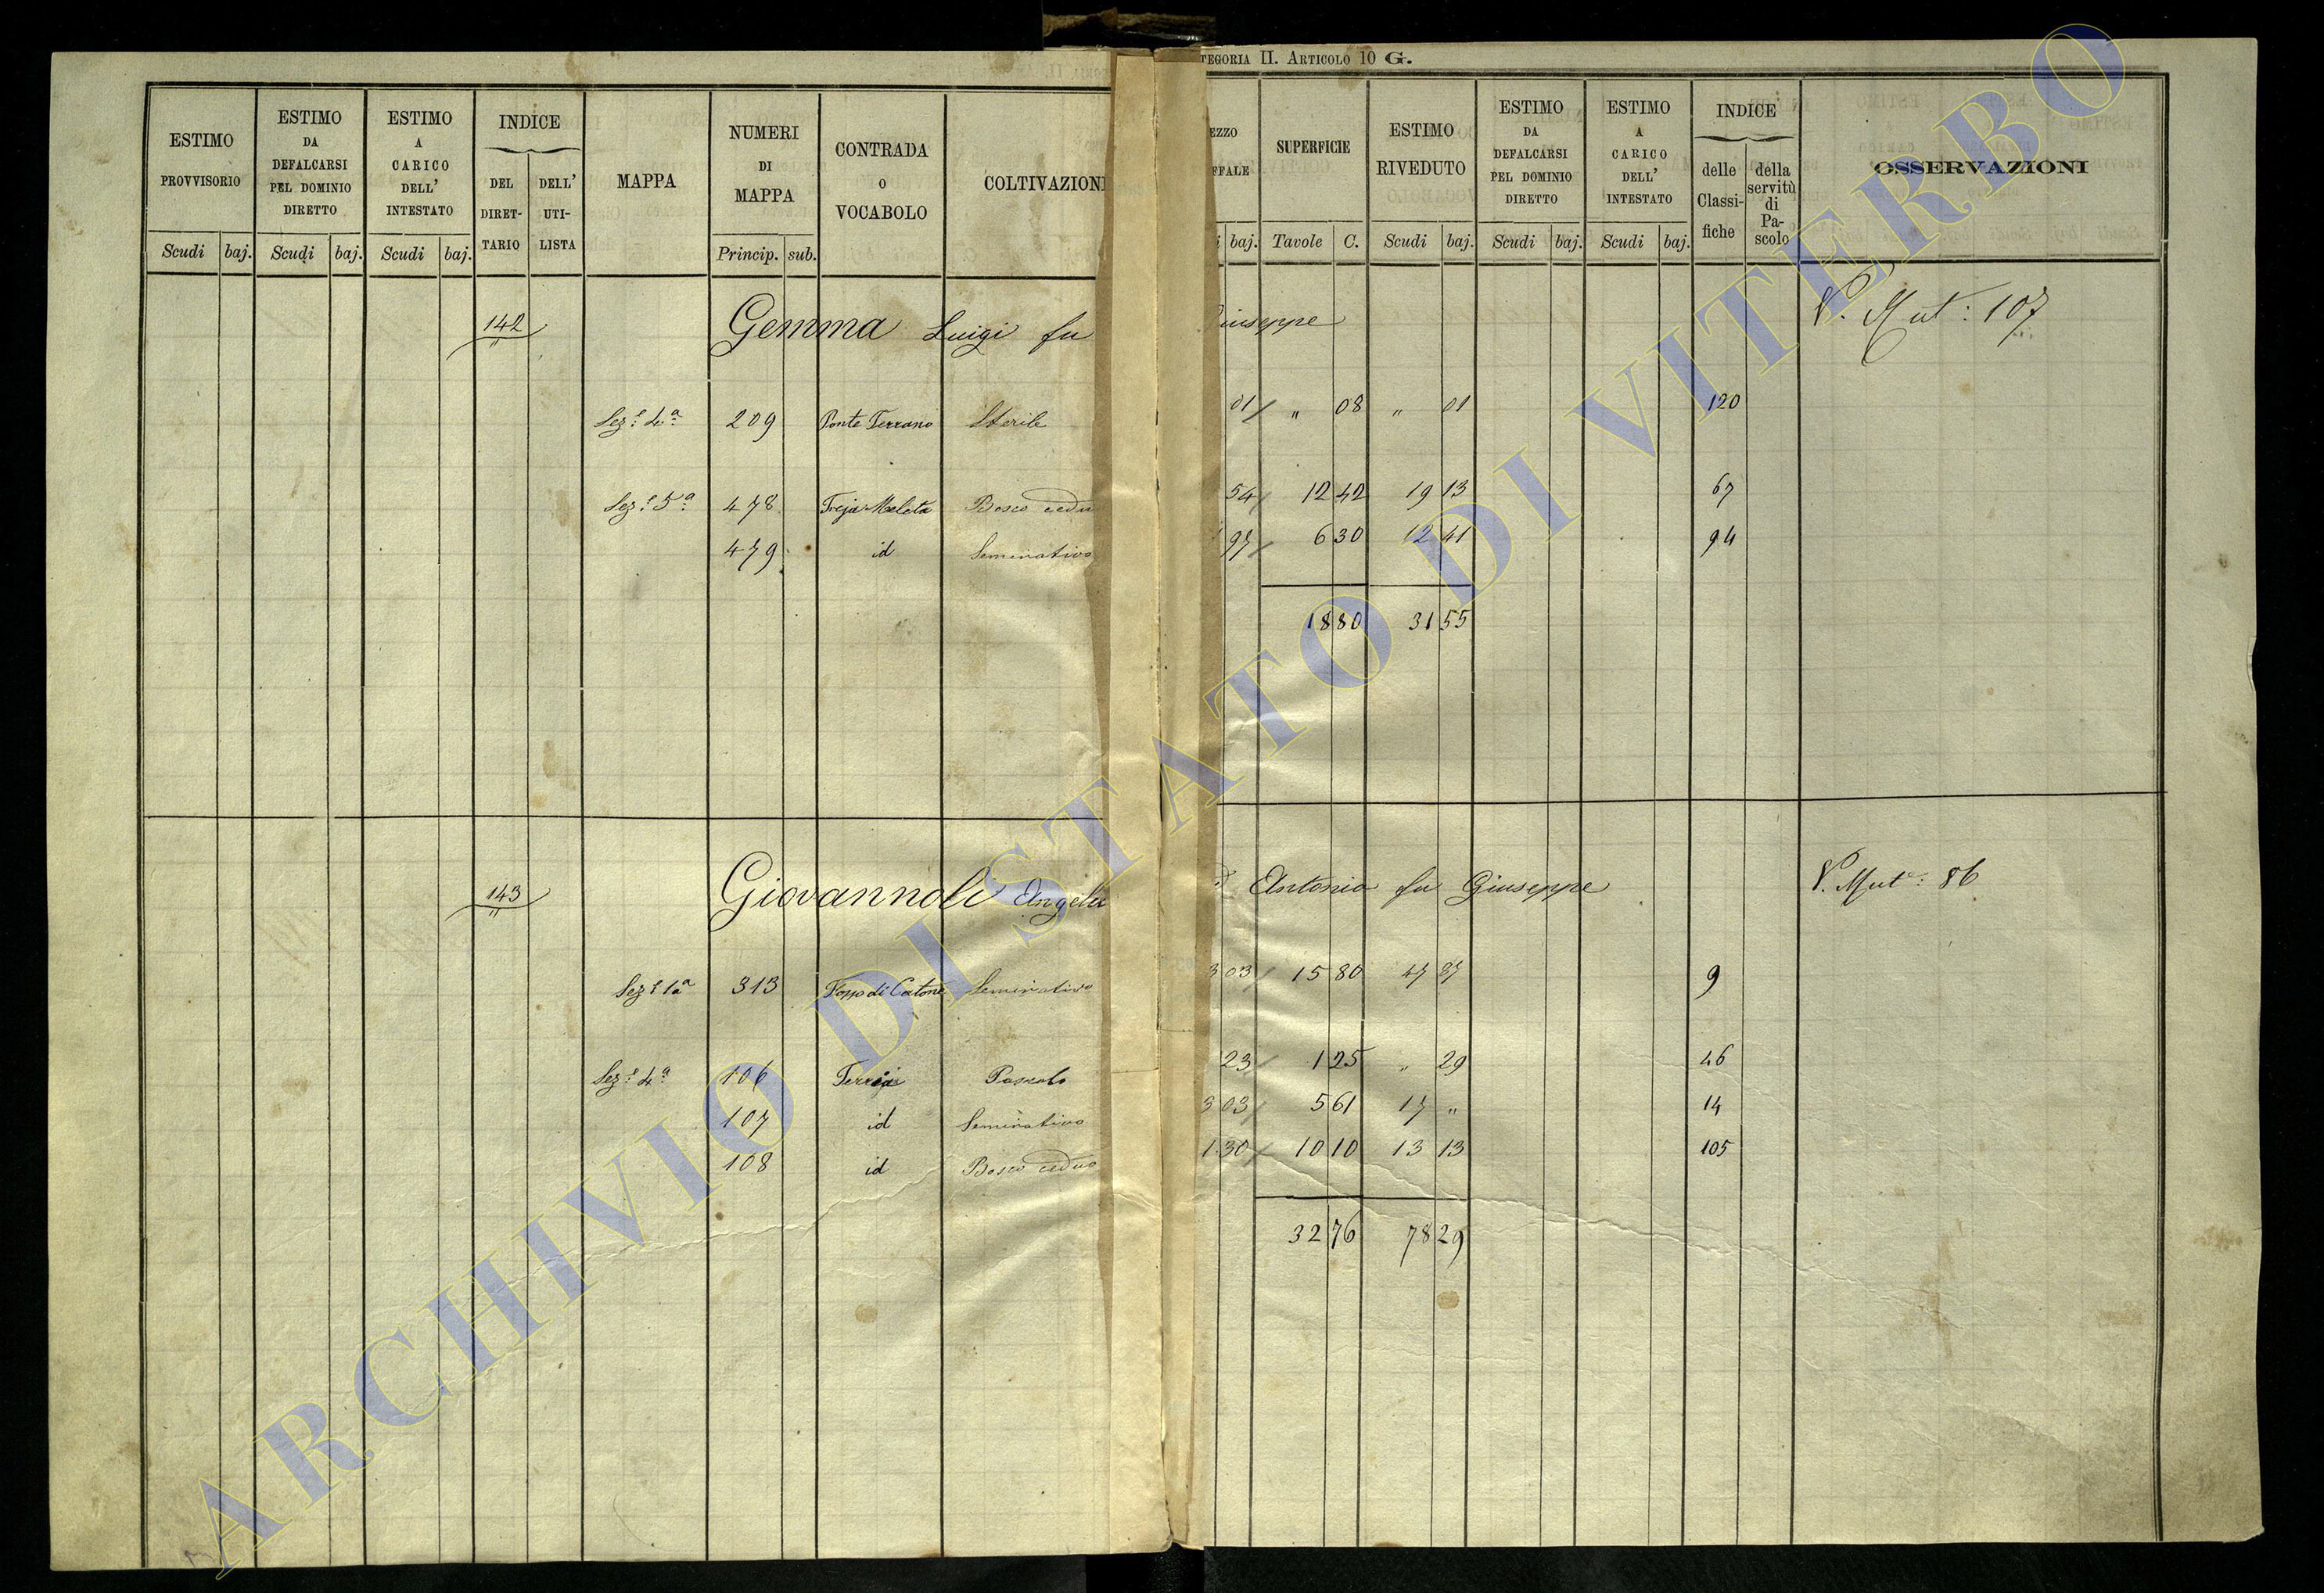 TEGORIA II. ARTICOLO 10 G.
ESTIMO PROVVISORIO Scudi baj.
ESTIMO DA DEFALCARSI PEL DOMINIO DIRETTO Scudi baj.
ESTIMO A CARICO DELL' INTESTATO Scudi baj.
INDICE DEL DIRET-TARIO DELL' UTI-LISTA
MAPPA
NUMERI DI MAPPA Princip. sub.
CONTRADA O VOCABOLO
COLTIVAZIONI
EZZO FFALE i baj.
SUPERFICIE Tavole C.
ESTIMO RIVEDUTO Scudi baj.
ESTIMO DA DEFALCARSI PEL DOMINIO DIRETTO Scudi baj.
ESTIMO A CARICO DELL' INTESTATO Scudi baj.
INDICE delle Classi-fiche della servitù di Pa-scolo
OSSERVAZIONI
142 Gemma Luigi fu Giuseppe V. Mut: 107
Sez.e 4a 209 Ponte Terrano Sterile 01 " 08 " 01 120
Sez.e 5a 478 Treja Meleta Bosco cedu 54 12 42 19 13 67
479 id Seminativo 97 6 30 12 41 94
18 80 31 55
143 Giovannoli Angelu Antonio fu Giuseppe V. Mut.e: 86
Sez.e 1a 313 Fosso di Catone Seminativo 3 03 15 80 47 87 9
Sez.e 4a 106 Terria Pascolo 23 1 25 " 29 46
107 id Seminativo 3 03 5 61 17 " 14
108 id Bosco ceduo 1 30 10 10 13 13 105
32 76 78 29
ARCHIVIO DI STATO DI VITERBO